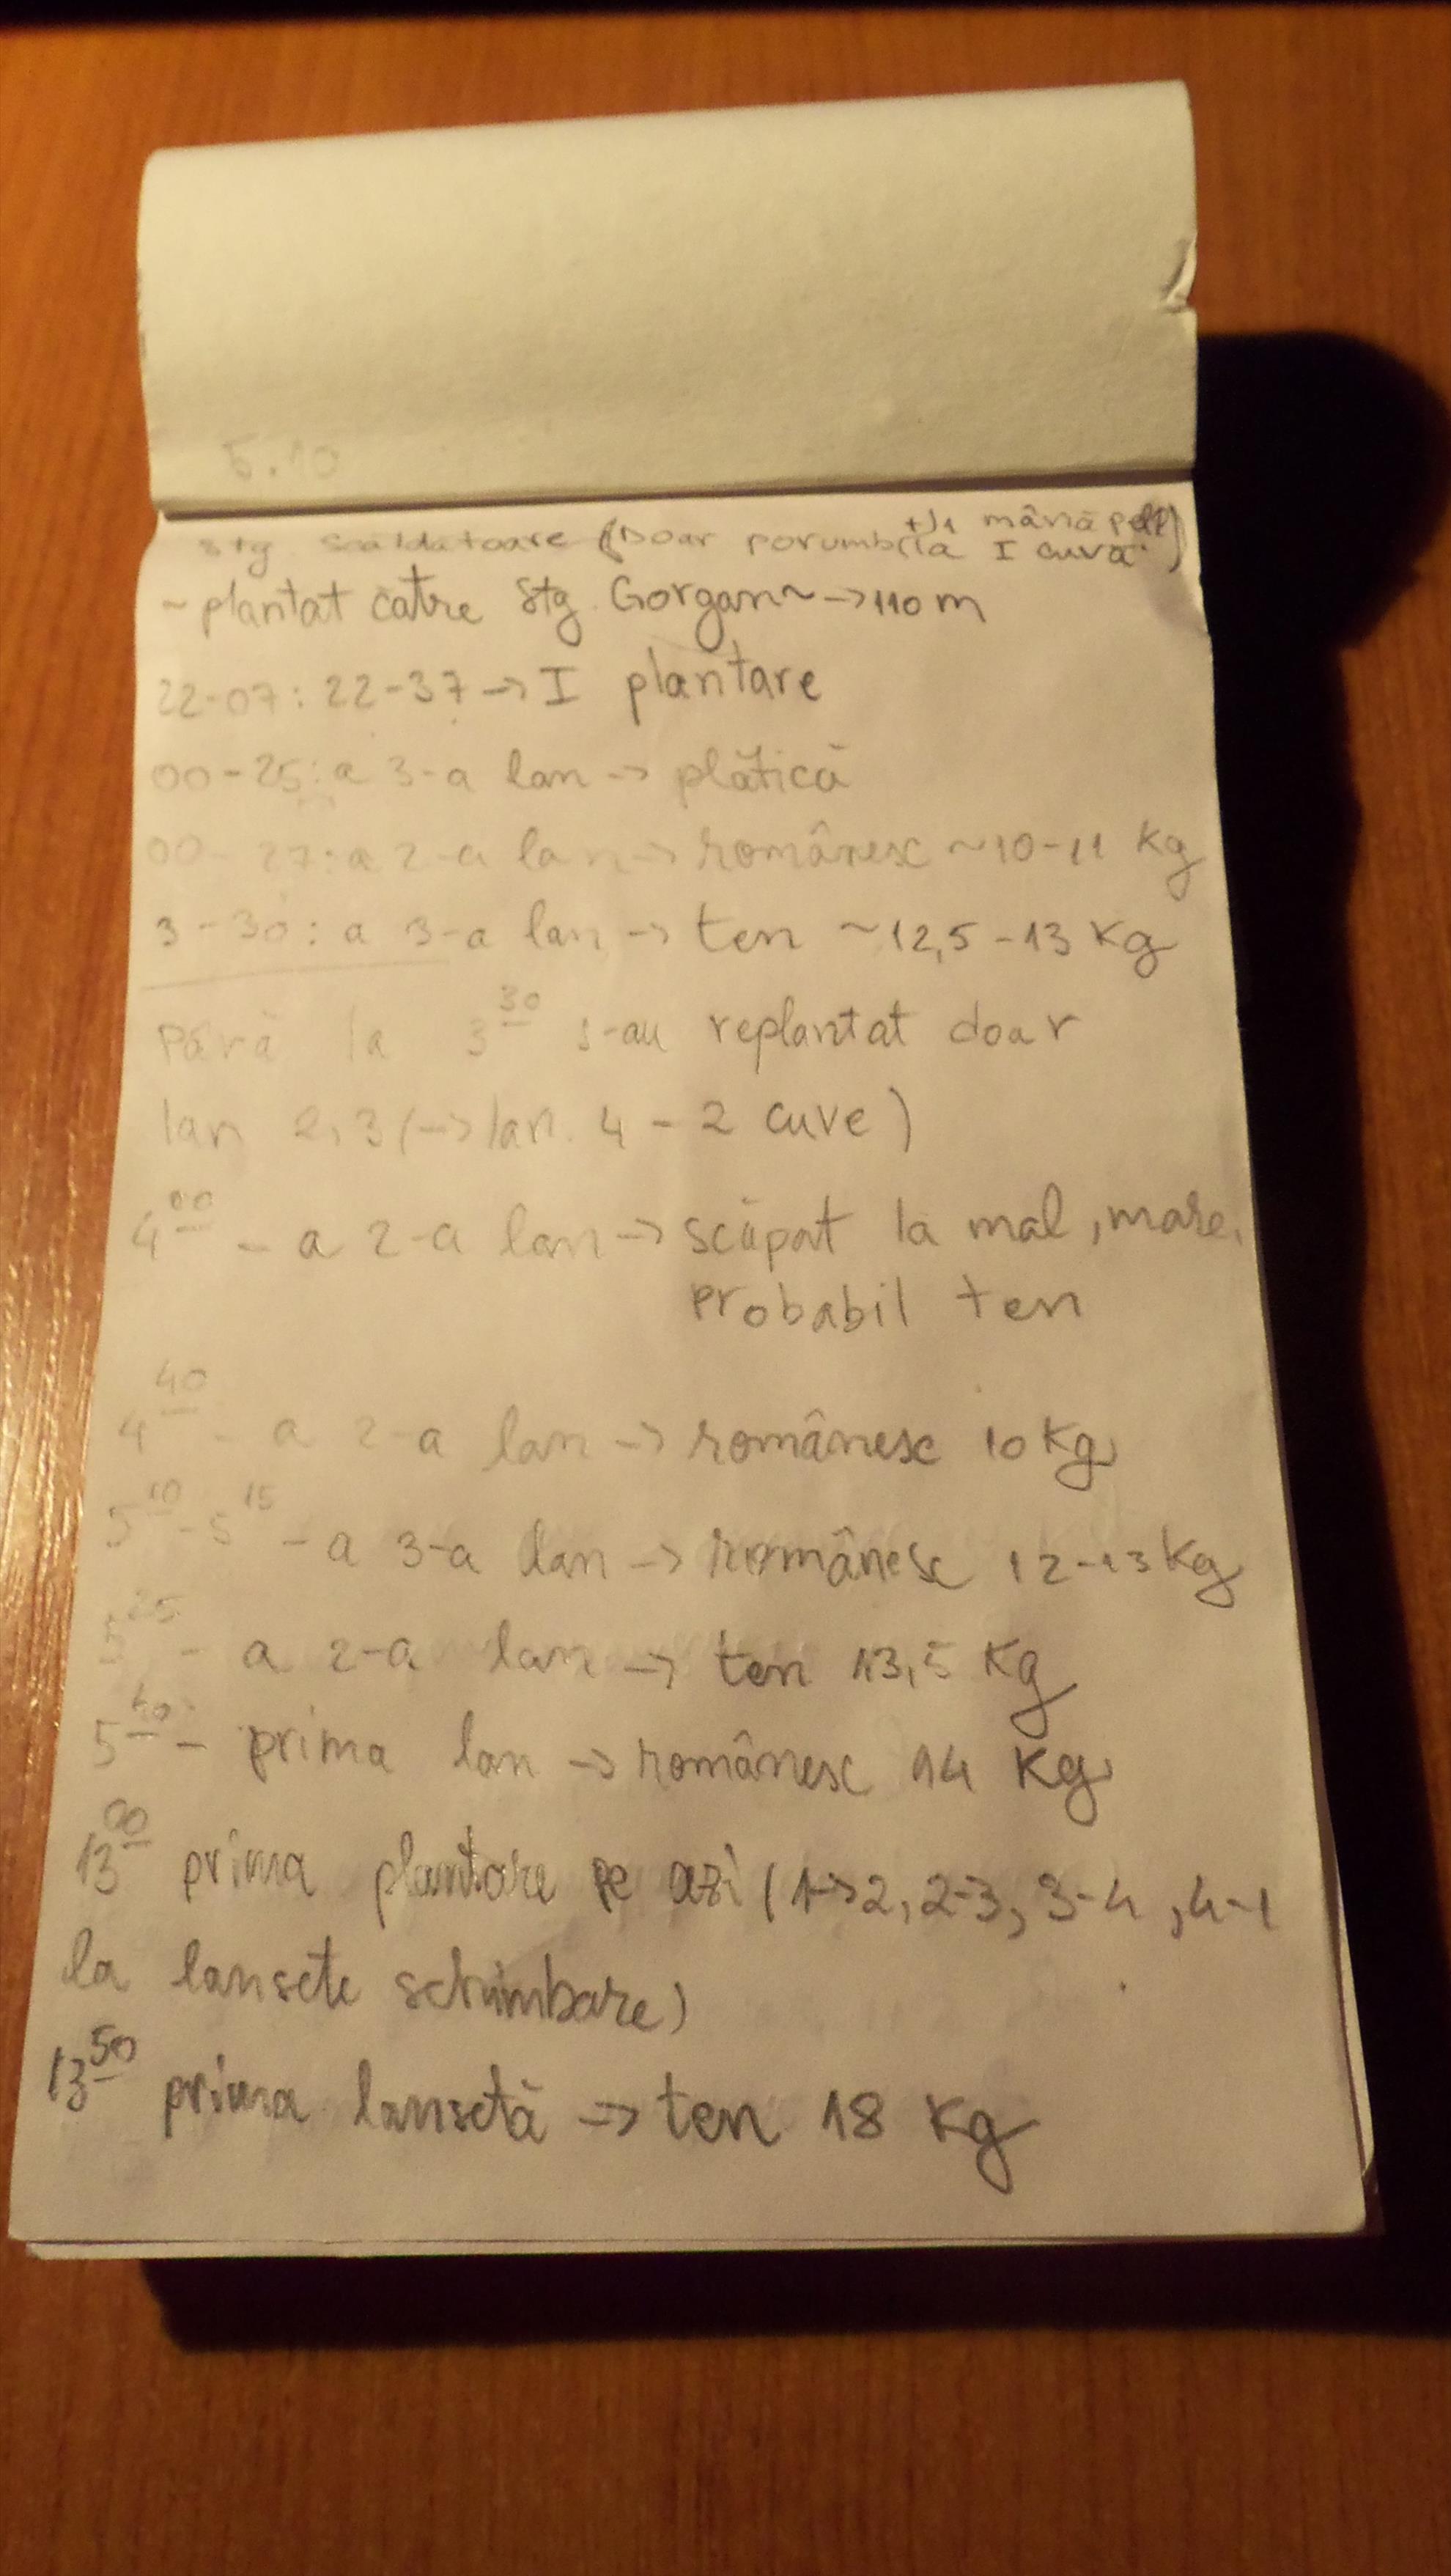 5.10
stg scăldătoare (Doar porumb (la I cuvă +/1 mână pell)
~ plantat către stg. Gorgan ~ -> 110 m
22-07: 22-37 -> I plantare
00-25: a 3-a lan -> plătică
00-27: a 2-a lan -> românesc ~10-11 kg
3-30: a 3-a lan -> ten ~12,5-13 kg
Până la 3 30 s-au replantat doar
lan 2,3 (-> lan. 4 - 2 cuve)
4 00 - a 2-a lan -> scăpat la mal, mare,
probabil ten
4 40 - a 2-a lan -> românesc 10 kg
5 10 - 5 15 - a 3-a lan -> românesc 12-13 kg
5 25 - a 2-a lan -> ten 13,5 kg
5 40 - prima lan -> românesc 14 kg
13 00 prima plantare pe azi (1->2, 2-3, 3-4, 4-1
la lansete schimbare)
13 50 prima lansetă -> ten 18 kg